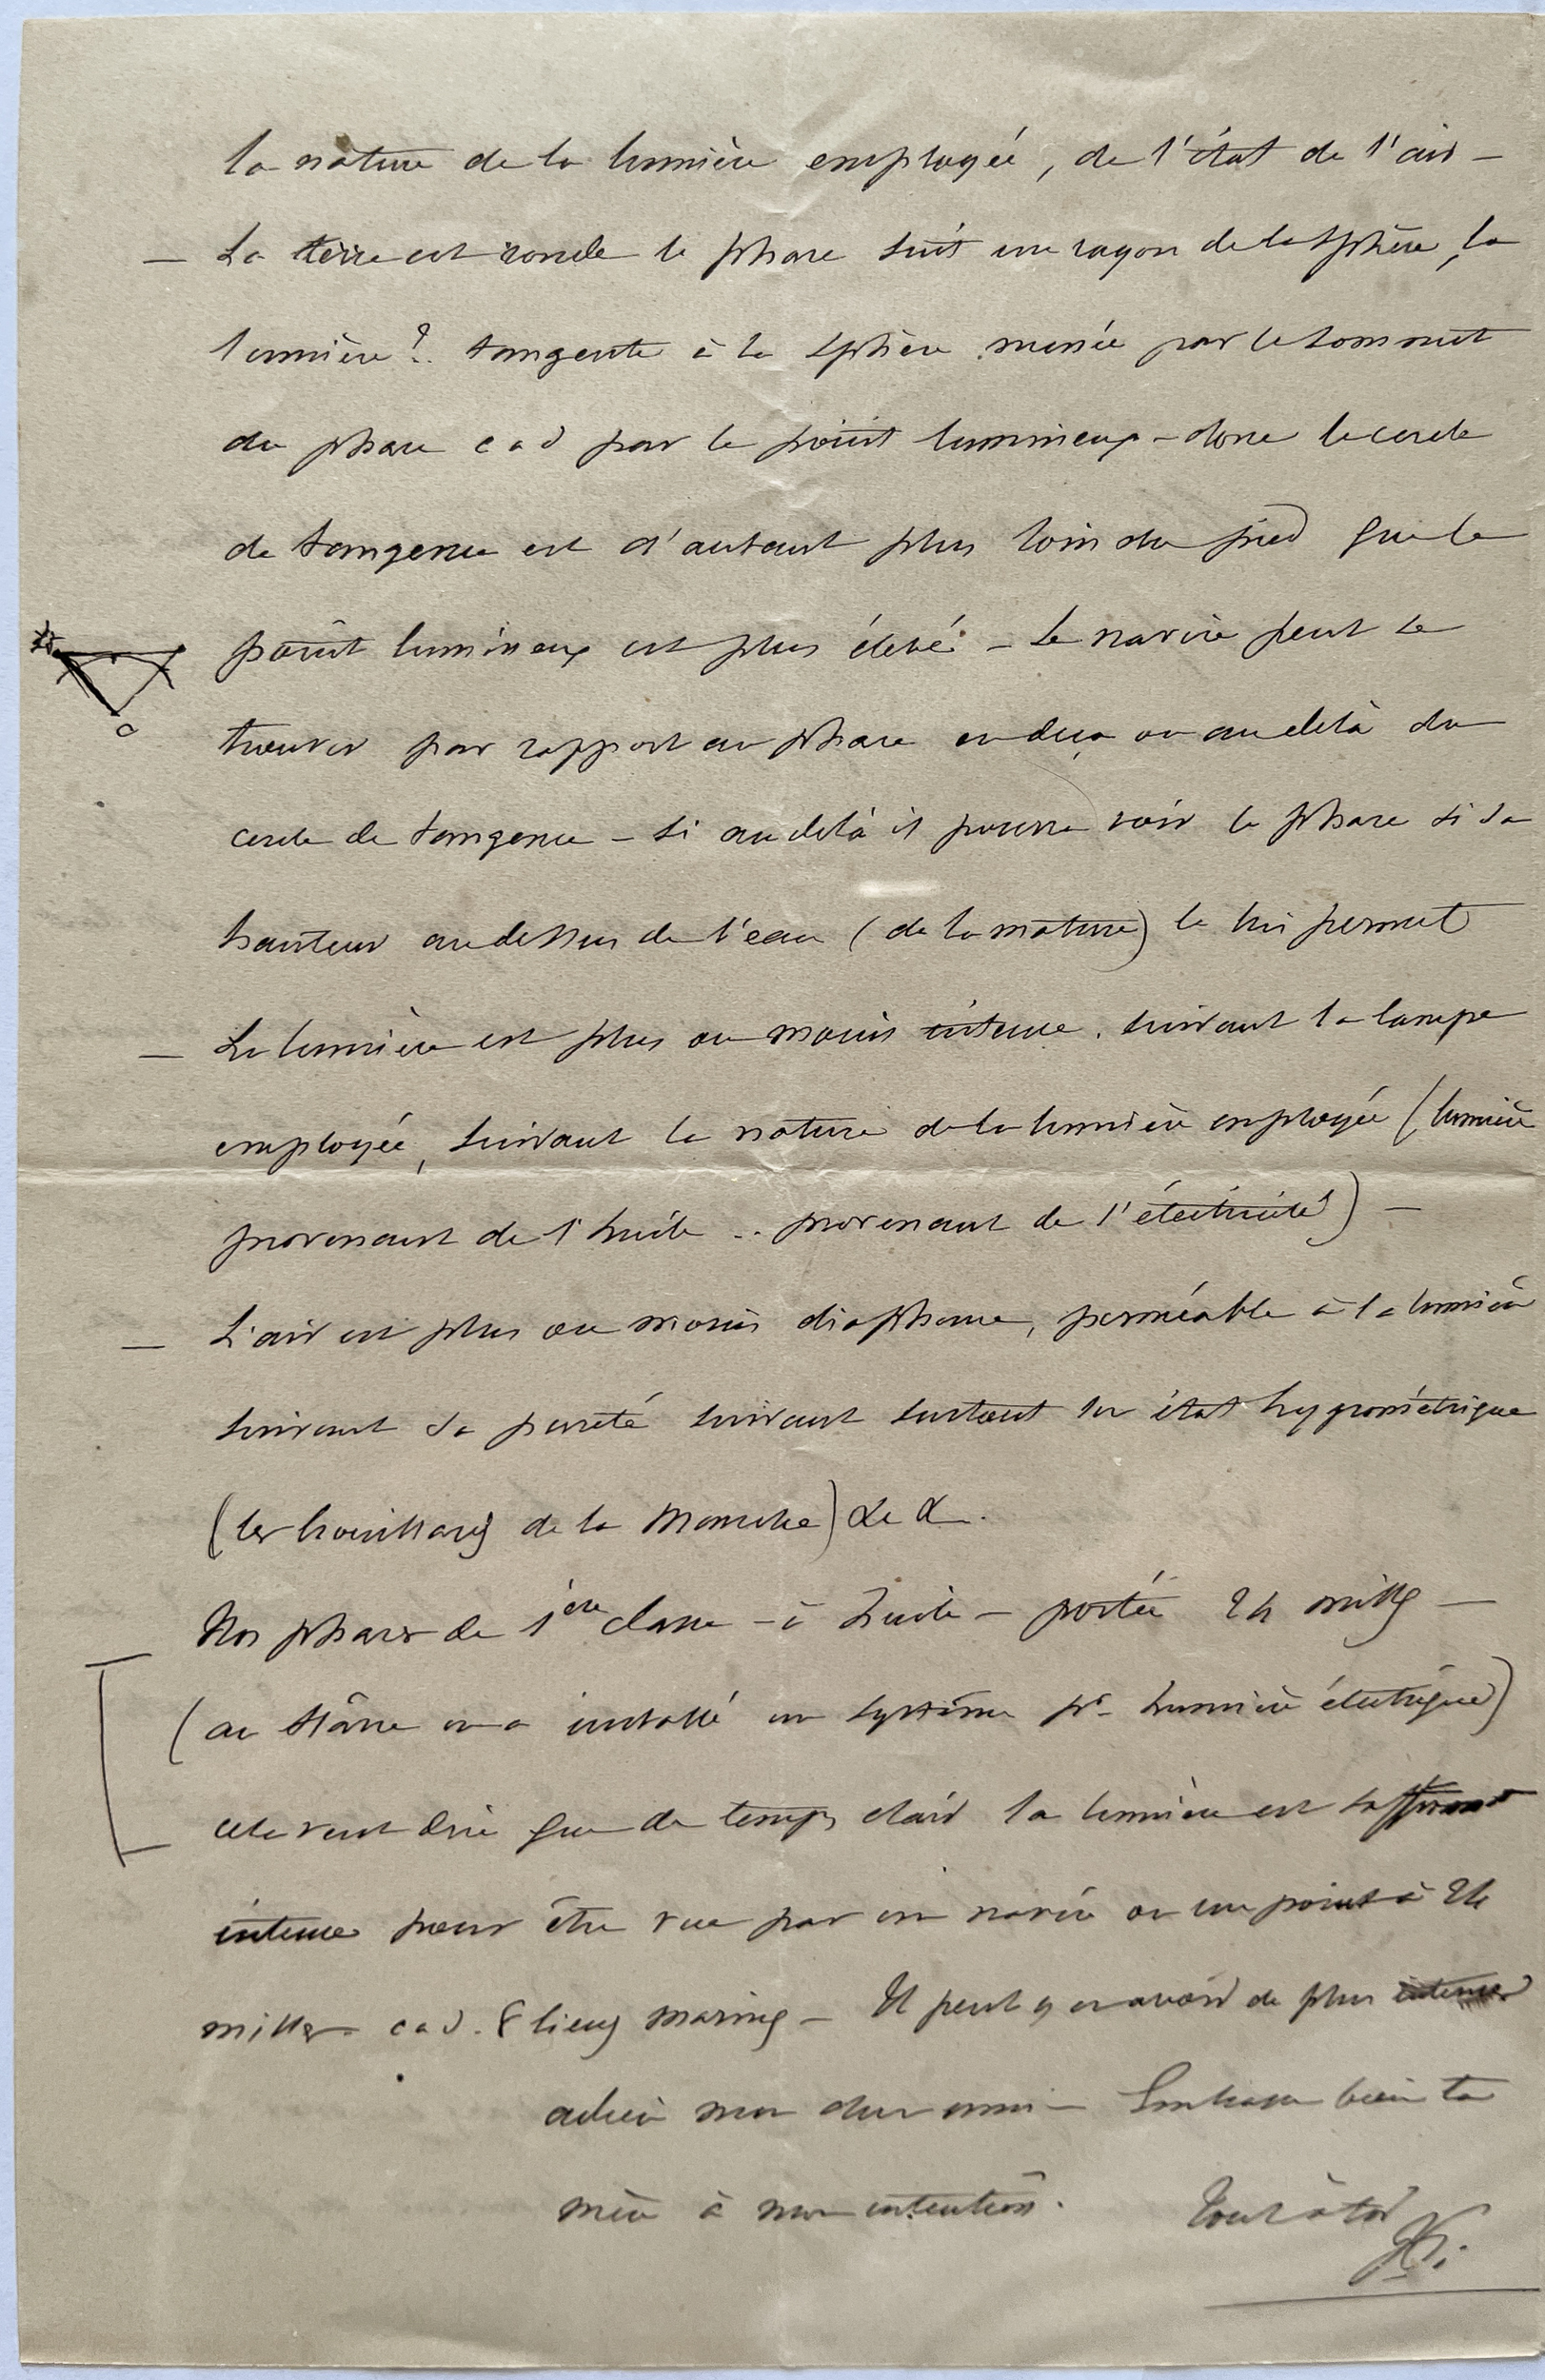 la nature de la lumière employée, de l'état de l'air –
– La terre est ronde le phare suit un rayon de la sphère, la
lumière ?.. tangente à la sphère menée par le sommet
du phare c a d par le point lumineux – donc le cercle
de tangence est d'autant plus loin du pied que le
point lumineux est plus élevé – Le navire peut se
trouver par rapport au phare en deça ou au delà du
cercle de tangence – si au delà il pourra voir le phare si sa
hauteur au dessus de l'eau (de la mature) le lui permet
– La lumière est plus ou moins intense. suivant la lampe
employée, suivant la nature de la lumière employée (lumière
provenant de l'huile .. provenant de l'électricité) –
– L'air est plus ou moins diaphane, perméable à la lumière
suivant sa pureté suivant surtout son état hygrométrique
(les brouillards de la Manche) &c &c.
Nos phares de 1ère classe – à huile – portée 24 milles –
(au on a installé un système pr lumière électrique)
cela veut dire que de temps clair la lumière est
intense pour être vue par un navire ou un point à 24
milles c a d. 8 lieues marines – Il peut y en avoir de plus intenses
adieu mon cher ami – Embrasse bien ta
mère à mon intention. Tout à toi